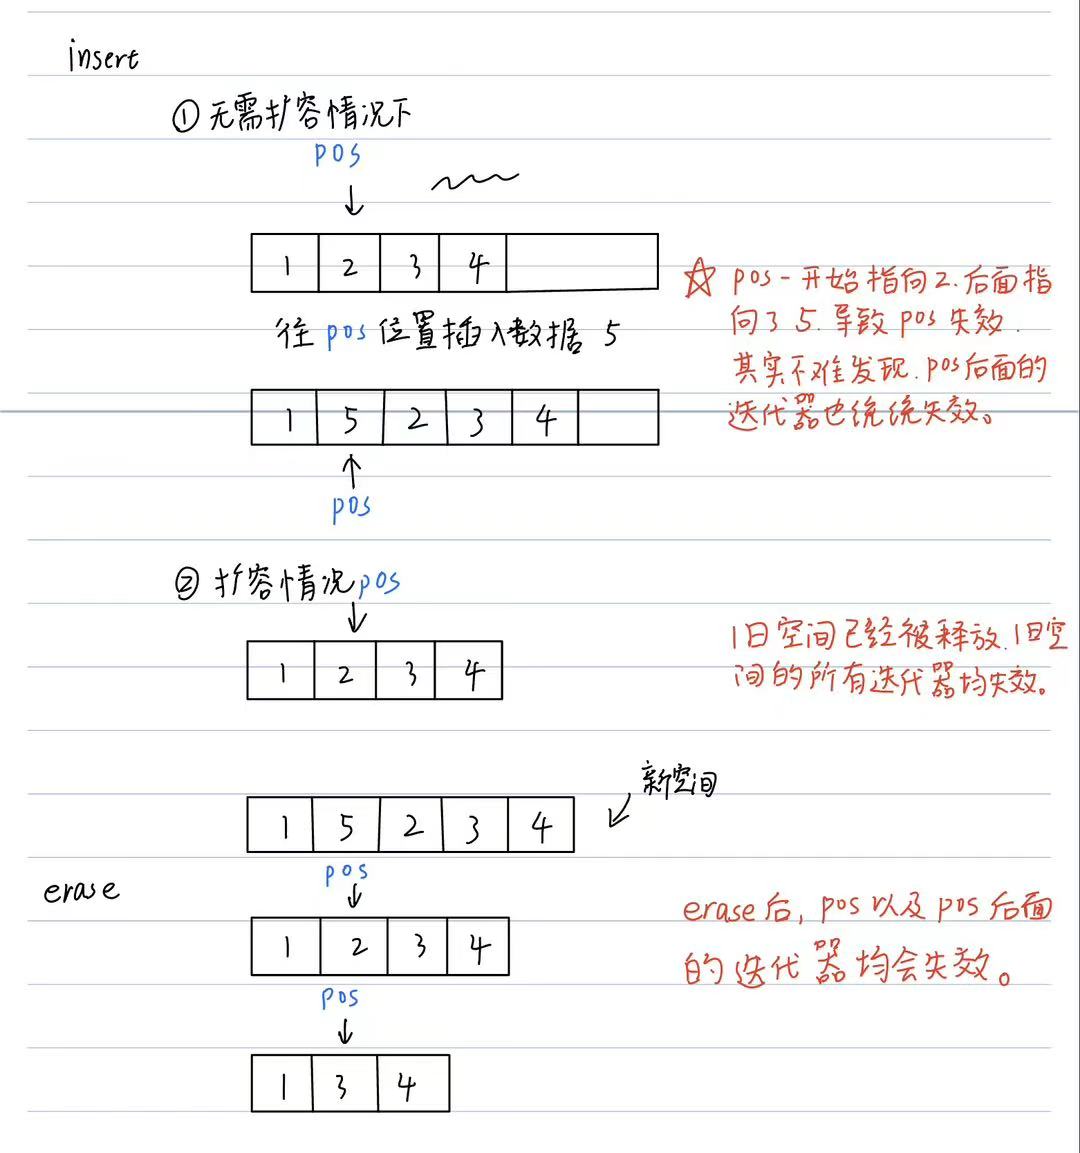 insert
①无需扩容情况下
pos
1 2 3 4
往pos位置插入数据 5
☆ pos一开始指向2.后面指
向了5.导致pos失效.
其实不难发现.pos后面的
迭代器也统统失效。
1 5 2 3 4
pos
②扩容情况pos
1 2 3 4
旧空间已经被释放.旧空
间的所有迭代器均失效。
新空间
1 5 2 3 4
erase
pos
1 2 3 4
erase后,pos以及pos后面
的迭代器均会失效。
pos
1 3 4